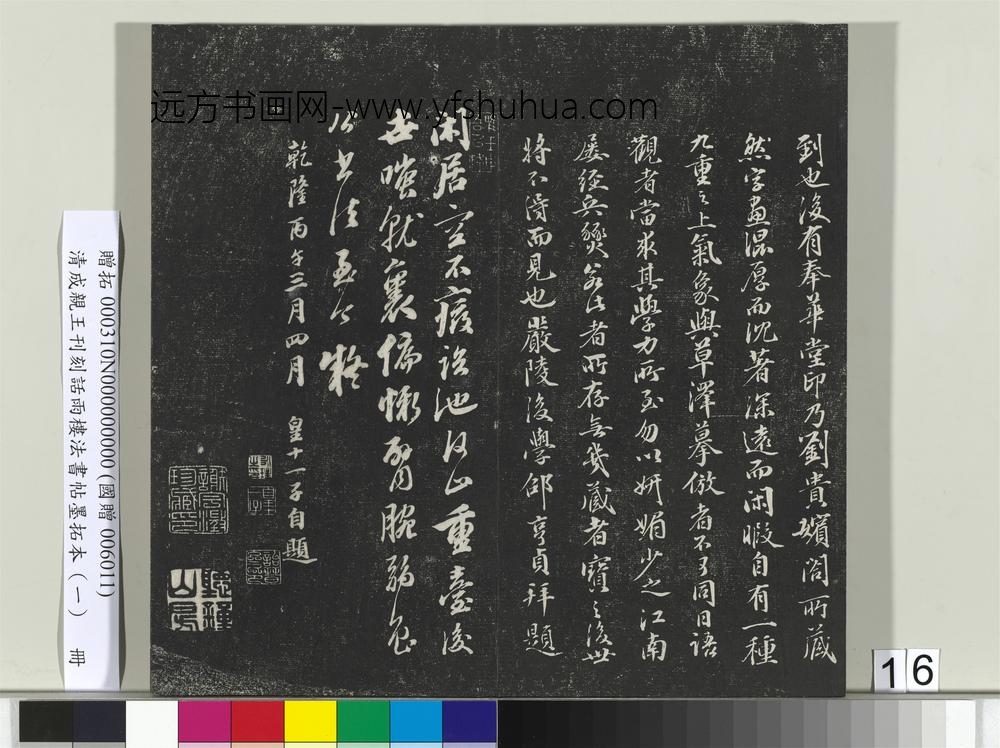 远方书画网-www.yfshuhua.com
到也後有奉華堂印乃劉貴嬪閤所藏
然字畫混厚而沈著深遠而閑暇自有一種
九重之上氣象與草澤摹倣者不可同日語
觀者當求其學力所至勿以妍媚少之江南
屡經兵燹若此者所存無幾藏者寶之後世
將不得而見也嚴陵後學邵亨貞拜題
閑居玄不廢臨池
山重臺後
皇十一子自題
乾隆丙午三月四月
贈拓 000310N000000000 (國贈 006011)
清成親王刊刻話雨樓法書帖墨拓本 (一) 冊
16